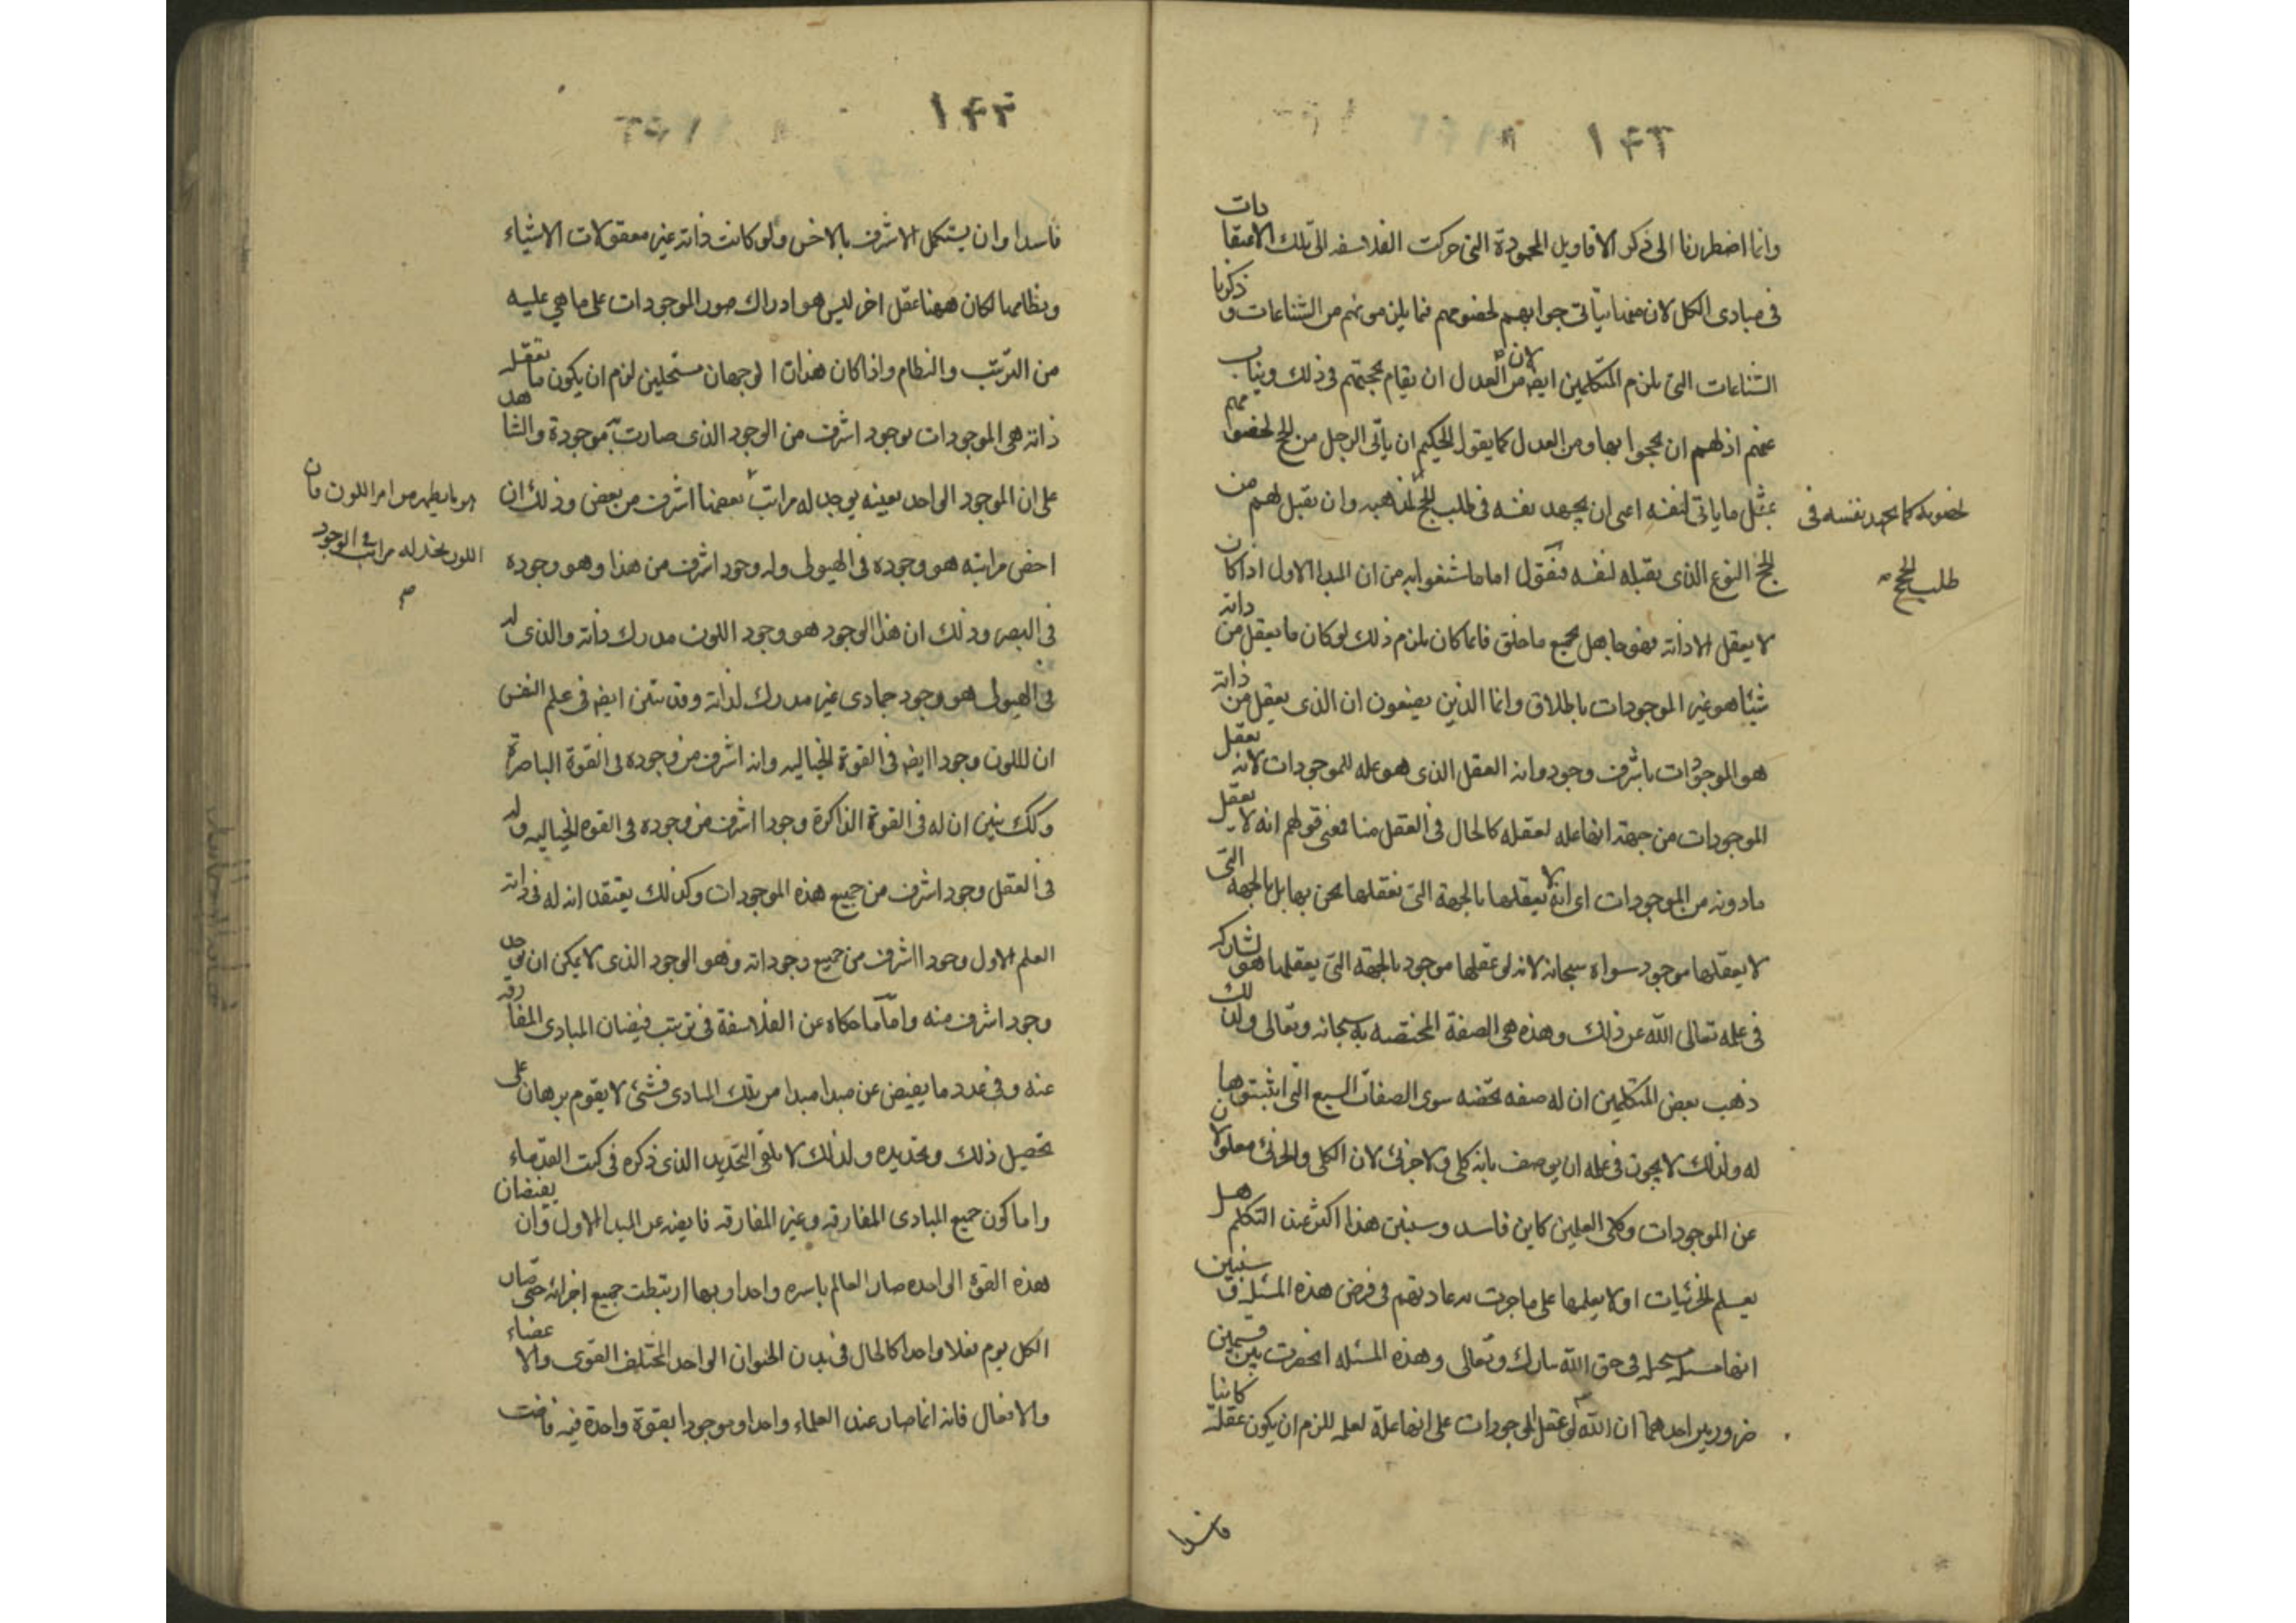 ١٤٢
وانما اضطررنا الى ذكر الاقاويل المحمودة التى حركت الفلاسفه الى تلك الاعتقادات
فى مبادى الكل لان منها يتاتى جوابهم لخصومهم فيما يلزمونهم من الشناعات وذكرنا
الشناعات التى تلزم المتكلمين ايضا لان من العدل ان يقام بحجتهم فى ذلك ويناب
عنهم اذ لهم ان يحجوا بها ومن العدل كما يقول الحكيم ان ياتى الرجل من الحجج لخصومهم
بمثل ما ياتى لنفسه اعنى ان يجهد نفسه فى طلب الحجج لمذهبه وان يقبل لهم من
لخصومه كما يجهد نفسه فى
طلب الحجج
الحجج النوع الذى يقبله لنفسه فنقول اما ما شنعوا به من ان المبدا الاول اذا كان
لا يعقل الا ذاته فهو جاهل بجميع ما خلق فانما كان يلزم ذلك لو كان ما يعقل من ذاته
شيئا هو غير الموجودات باطلاق وانما الذين يضعون ان الذى يعقل من ذاته
هو الموجودات باشرف وجود وانه العقل الذى هو عله للموجودات لا انه يعقل
الموجودات من جهة انها عله لعقله كالحال فى العقل منا فمعنى قولهم انه لا يعقل
ما دونه من الموجودات اى انه لا يعقلها بالجهة التى نعقلها نحن بها بل بالجهه التى
لا يعقلها موجود سواه سبحانه لانه لو عقلها موجود بالجهة التى يعقلها هو لشاركه
فى علمه تعالى الله عن ذلك وهذه هى الصفة المختصه به سبحانه وتعالى ولذلك
ذهب بعض المتكلمين ان له صفه تخصه سوى الصفات السبع التى اثبتوها
له ولذلك لا يجوز فى علمه ان يوصف بانه كلى ولا جزئى لان الكلى والجزئى معلولان
عن الموجودات وكلى العلمين كاين فاسد وسنبين هذا اكثر عند التكلم هل
يعلم الجزئيات او لا يعلمها على ما جرت به عادتهم فى فرض هذه المسئله وسنبين
انها مسئله مستحيله فى حق الله تبارك وتعالى وهذه المسئله انحصرت بين قسمين
ضروريين احدهما ان الله لو عقل الموجودات على انها علة لعلمه للزم ان يكون عقله كائنا
فاسدا
١٤٣
فاسدا وان يستكمل الاشرف بالاخس ولو كانت ذاته غير معقولات الاشياء
ونظامها لكان ههنا عقل اخر ليس هو ادراك صور الموجودات على ما هى عليه
من الترتيب والنظام واذا كان هذان الوجهان مستحيلين لزم ان يكون ما تعقله
ذاته هى الموجودات بوجود اشرف من الوجود الذى صارت به موجودة والشاهد
على ان الموجود الواحد بعينه يوجد له مراتب بعضها اشرف من بعض وذلك ان
هو ما يظهر من امر اللون فان
اللون نجد له مراتب فى الوجود
اخس مراتبه هو وجوده فى الهيولى وله وجود اشرف من هذا وهو وجوده
فى البصر وذلك ان هذا الوجود هو وجود اللون مدرك ذاته والذى له
فى الهيولى هو وجود جمادى غير مدرك لذاته وقد تبين ايضا فى علم النفس
ان للون وجودا ايضا فى القوة الخياليه وانه اشرف من وجوده فى القوة الباصرة
وكك تبين ان له فى القوة الذاكرة وجودا اشرف من وجوده فى القوه الخياليه وله
فى العقل وجود اشرف من جميع هذه الموجودات وكذلك يعتقد ان له فى ذاته
العلم الاول وجودا اشرف من جميع وجوداته وهو الوجود الذى لا يمكن ان يوجد
وجود اشرف منه واما ما حكاه عن الفلاسفة فى ترتيب فيضان المبادى المفارقه
عنه وفى عدد ما يفيض عن مبدا مبدا من تلك المبادى فشئ لا يقوم برهان على
تحصيل ذلك وتحديده ولذلك لا يلفى التحديد الذى ذكره فى كتب القدماء
واما كون جميع المبادى المفارقه وغير المفارقه فايضه عن المبدا الاول وان بفيضان
هذه القوة الواحده صار العالم باسره واحدا وبها ارتبطت جميع اجزائه حتى صار
الكل يوم فعلا واحدا كالحال فى بدن الحيوان الواحد المختلف القوى والاعضاء
والافعال فانه انما صار عند العلماء واحدا وموجودا بقوة واحدة فيه فاضت